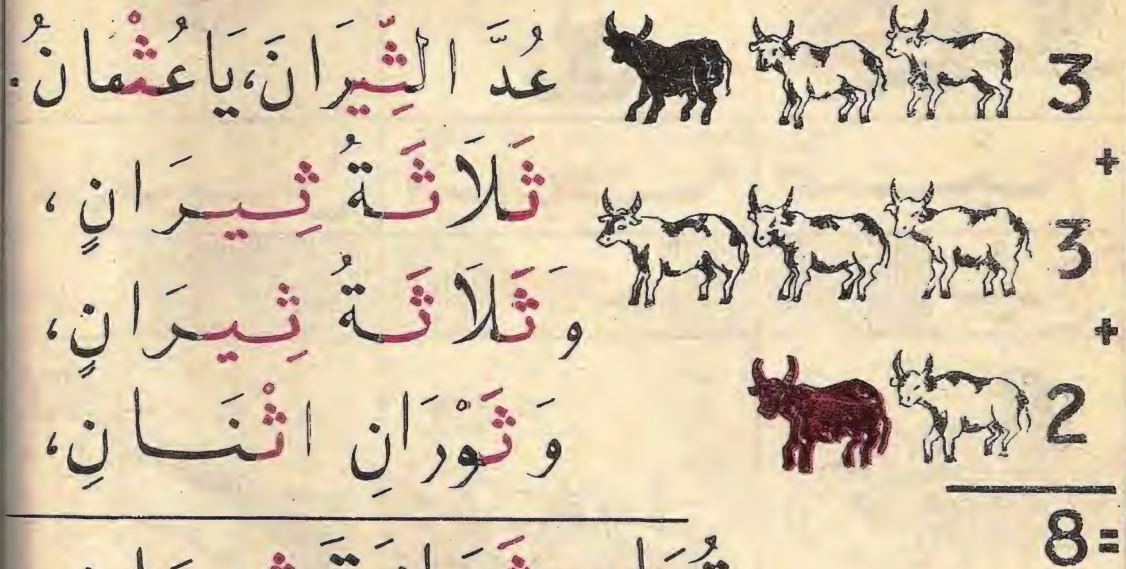 3 عُدَّ الثِّيرَانَ، يَا عُثْمَانُ.
+
3 ثَلَاثَةُ ثِيرَانٍ،
وَثَلَاثَةُ ثِيرَانٍ،
+
2 وَثَوْرَانِ اثْنَانِ،
8=